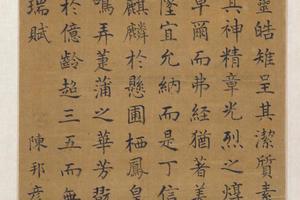 靈皓雉呈其潔質素
其神精章光烈之燁
卓爾而弗经猶著美
隆宜允納而是丁信
麒麟於懸圃栖鳳皇
鳴弄萐蒲之華芳
於億齡超三五而無
瑞賦
陳邦彥